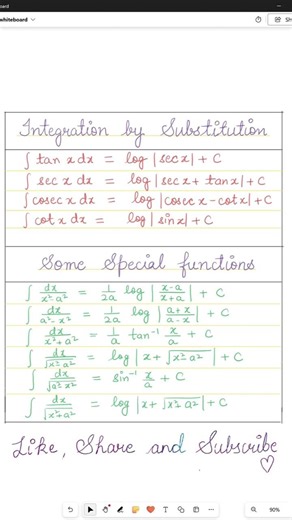 board
whiteboard
Sh
Integration by Substitution
∫ tan x dx = log |sec x| + C
∫ sec x dx = log |sec x + tan x| + C
∫ cosec x dx = log |cosec x - cot x| + C
∫ cot x dx = log |sin x| + C
Some Special functions
∫ dx/x²-a² = 1/2a log |x-a/x+a| + C
∫ dx/a²-x² = 1/2a log |a+x/a-x| + C
∫ dx/x²+a² = 1/a tan⁻¹ x/a + C
∫ dx/√x²-a² = log |x + √x²-a²| + C
∫ dx/√a²-x² = sin⁻¹ x/a + C
∫ dx/√x²+a² = log |x + √x²+a²| + C
Like, Share and Subscribe
90%